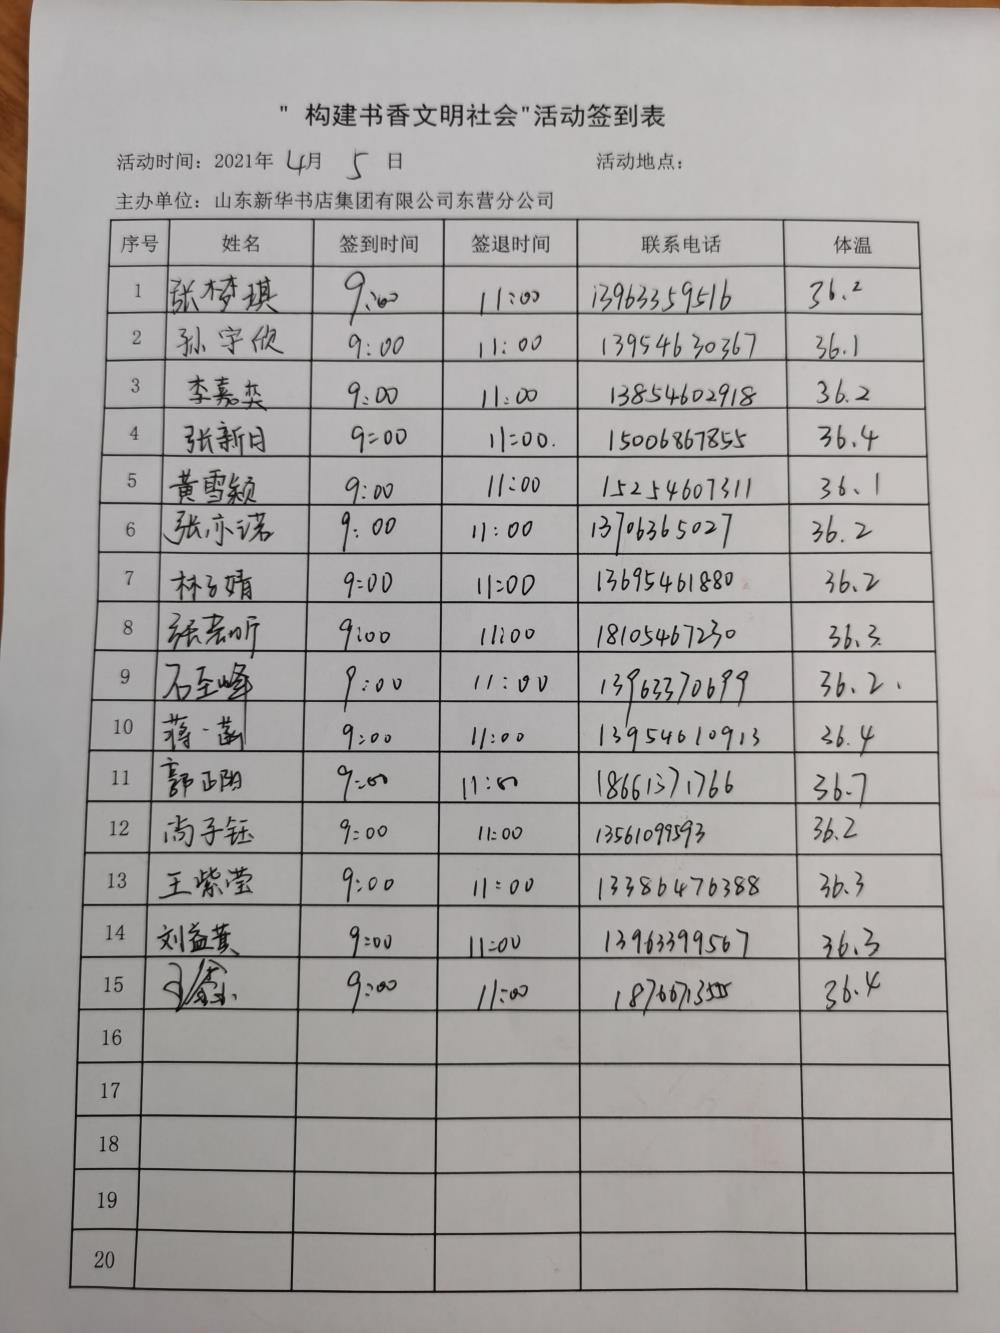 " 构建书香文明社会"活动签到表
活动时间：2021年 4月 5 日 活动地点：
主办单位：山东新华书店集团有限公司东营分公司
序号 姓名 签到时间 签退时间 联系电话 体温
1 张梦琪 9:00 11:00 13963359516 36.2
2 孙宇欣 9:00 11:00 13954630367 36.1
3 李嘉奕 9:00 11:00 13854602918 36.2
4 张新日 9:00 11:00. 15006867855 36.4
5 黄雪颖 9:00 11:00 15254607311 36.1
6 张亦诺 9:00 11:00 13706365027 36.2
7 林子婧 9:00 11:00 13695461880 36.2
8 张 9:00 11:00 18105467230 36.3
9 石至峰 9:00 11:00 13963370699 36.2.
10 蒋一菡 9:00 11:00 13954610913 36.4
11 郭正阳 9:00 11:00 18661371766 36.7
12 尚子钰 9:00 11:00 13561099593 36.2
13 王紫莹 9:00 11:00 13386476388 36.3
14 刘益 9:00 11:00 13963399567 36.3
15 9:00 11:00 36.4
16
17
18
19
20